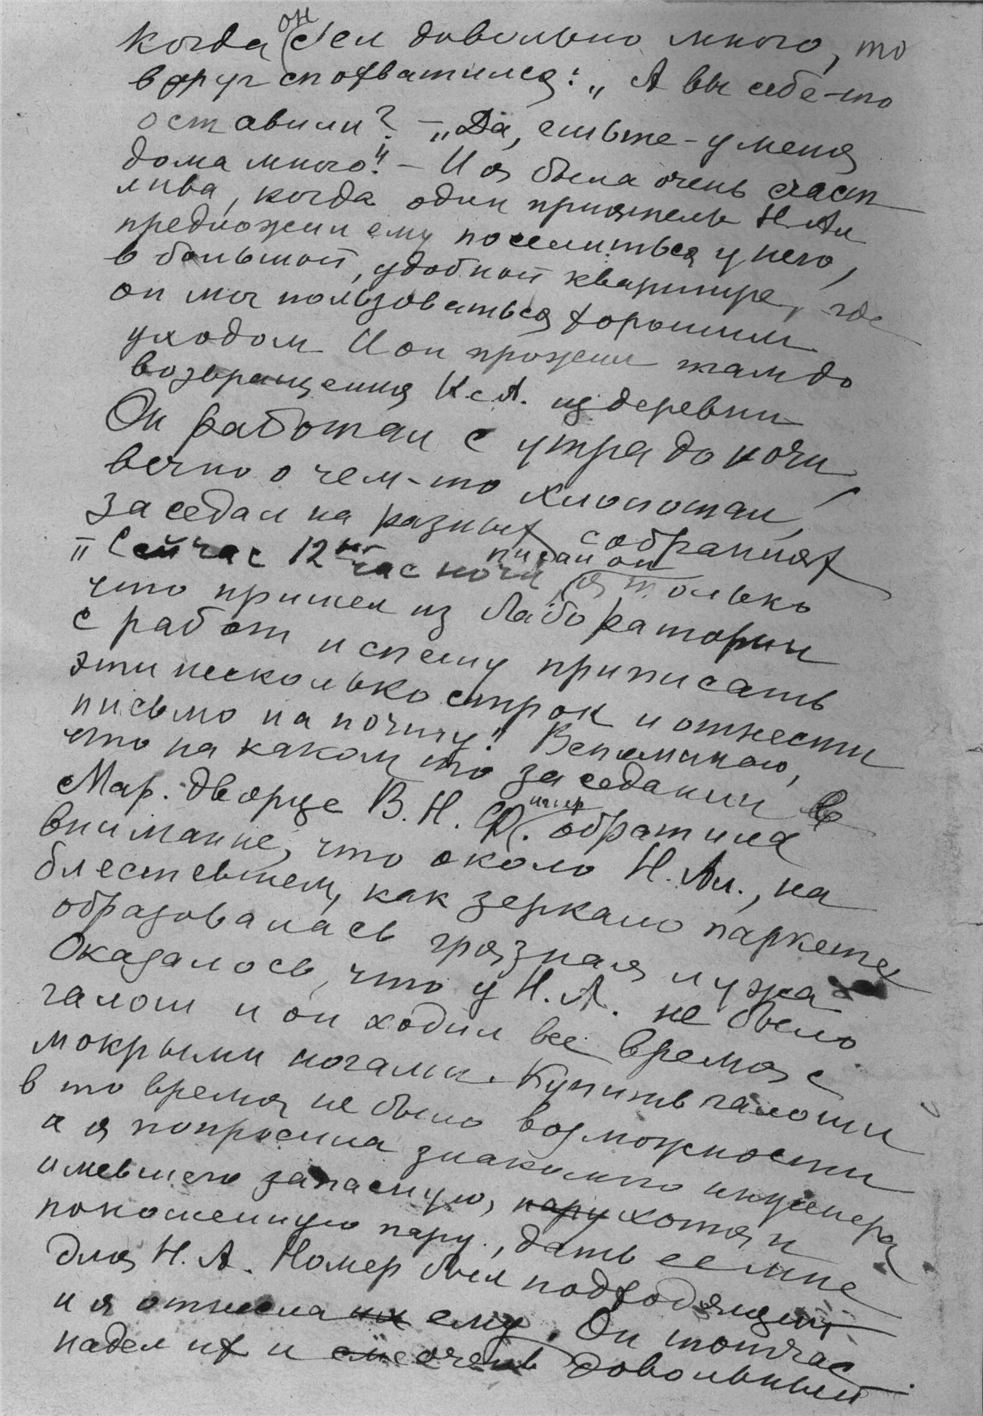 когда он съел довольно много, то
вдруг спохватился: „А вы себе-то
оставили? – „Да, ешьте – у меня
дома много". – И я была очень счаст
лива, когда один приятель Н. Ал
предложил ему поселиться у него,
в большой, удобной квартире, где
он мог пользоваться хорошим
уходом И он прожил там до
возвращения К. А. из деревни
Он работал с утра до ночи,
вечно о чем-то хлопотал,
заседал на разных собраниях
„Сейчас 12 час ночи, писал он я только
что пришел из Лаборатории
с работ и спешу приписать
эти несколько строк и отнести
письмо на почту". Вспоминаю,
что на каком то заседании в
Мар. дворце В. Н. обратила
внимание, что около Н. Ал., на
блестевшем, как зеркало паркете
образовалась грязная лужа
Оказалось, что у Н. А. не было
галош и он ходил все время с
мокрыми ногами. Купить галоши
в то время не было возможности
и я попросила знакомого инженера
имевшего запасную, пару хотя и
поношенную пару, дать ее мне
для Н. А. Номер был подходящий
и я отнесла их ему. Он тотчас
надел их и очень довольный